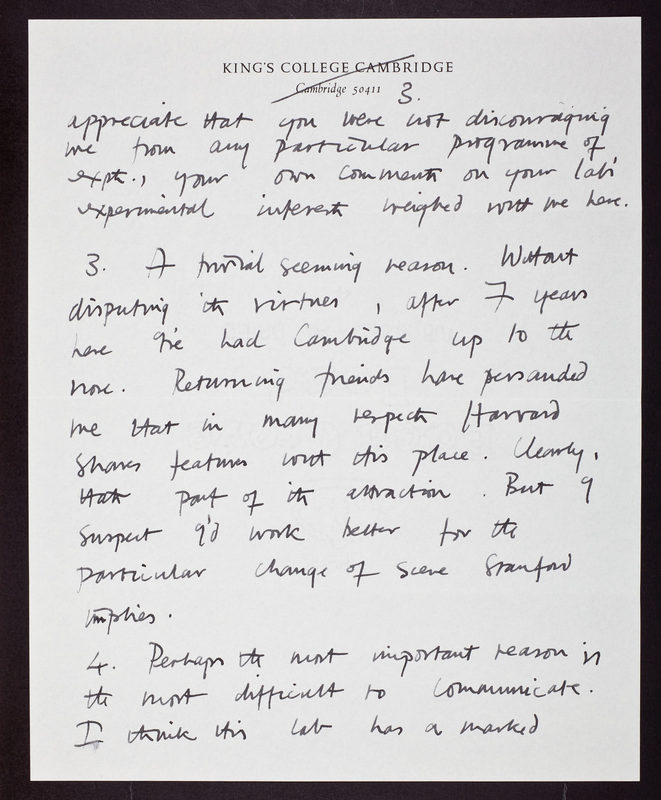 KING'S COLLEGE CAMBRIDGE
Cambridge 50411
3.
appreciate that you were not discouraging
me from any particular programme of
expts., your own comments on your lab's
experimental interests weighed with me here.
3. A trivial seeming reason. Without
disputing its virtues, after 7 years
here I've had Cambridge up to the
nose. Returning friends have persuaded
me that in many respects Harvard
shares features with this place. Clearly,
thats part of its attraction. But I
suspect I'd work better for the
particular change of scene Stanford
implies.
4. Perhaps the most important reason is
the most difficult to communicate.
I think this lab has a marked